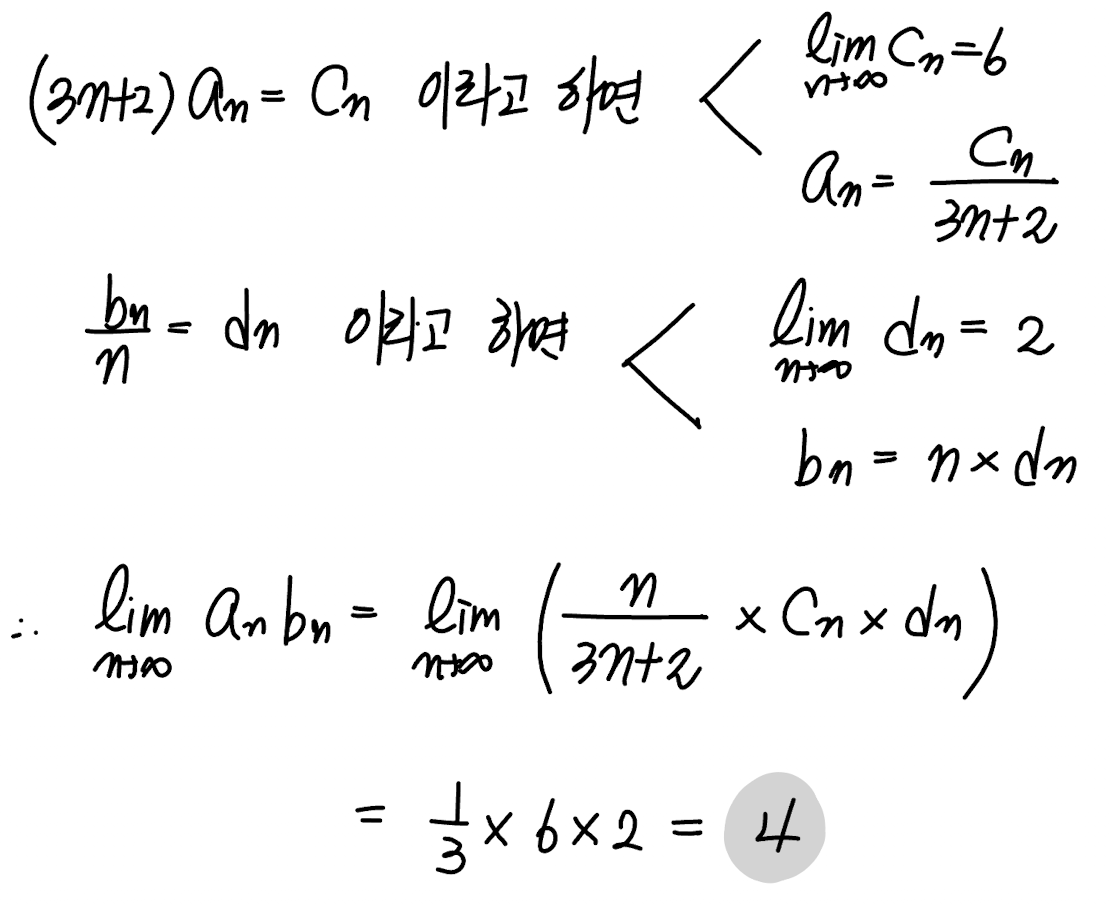 (3n+2) aₙ = Cₙ 이라고 하면 < lim_{n→∞} Cₙ = 6
aₙ = Cₙ / (3n+2)
bₙ/n = dₙ 이라고 하면 < lim_{n→∞} dₙ = 2
bₙ = n × dₙ
∴ lim_{n→∞} aₙ bₙ = lim_{n→∞} ( n/(3n+2) × Cₙ × dₙ )
= 1/3 × 6 × 2 = 4